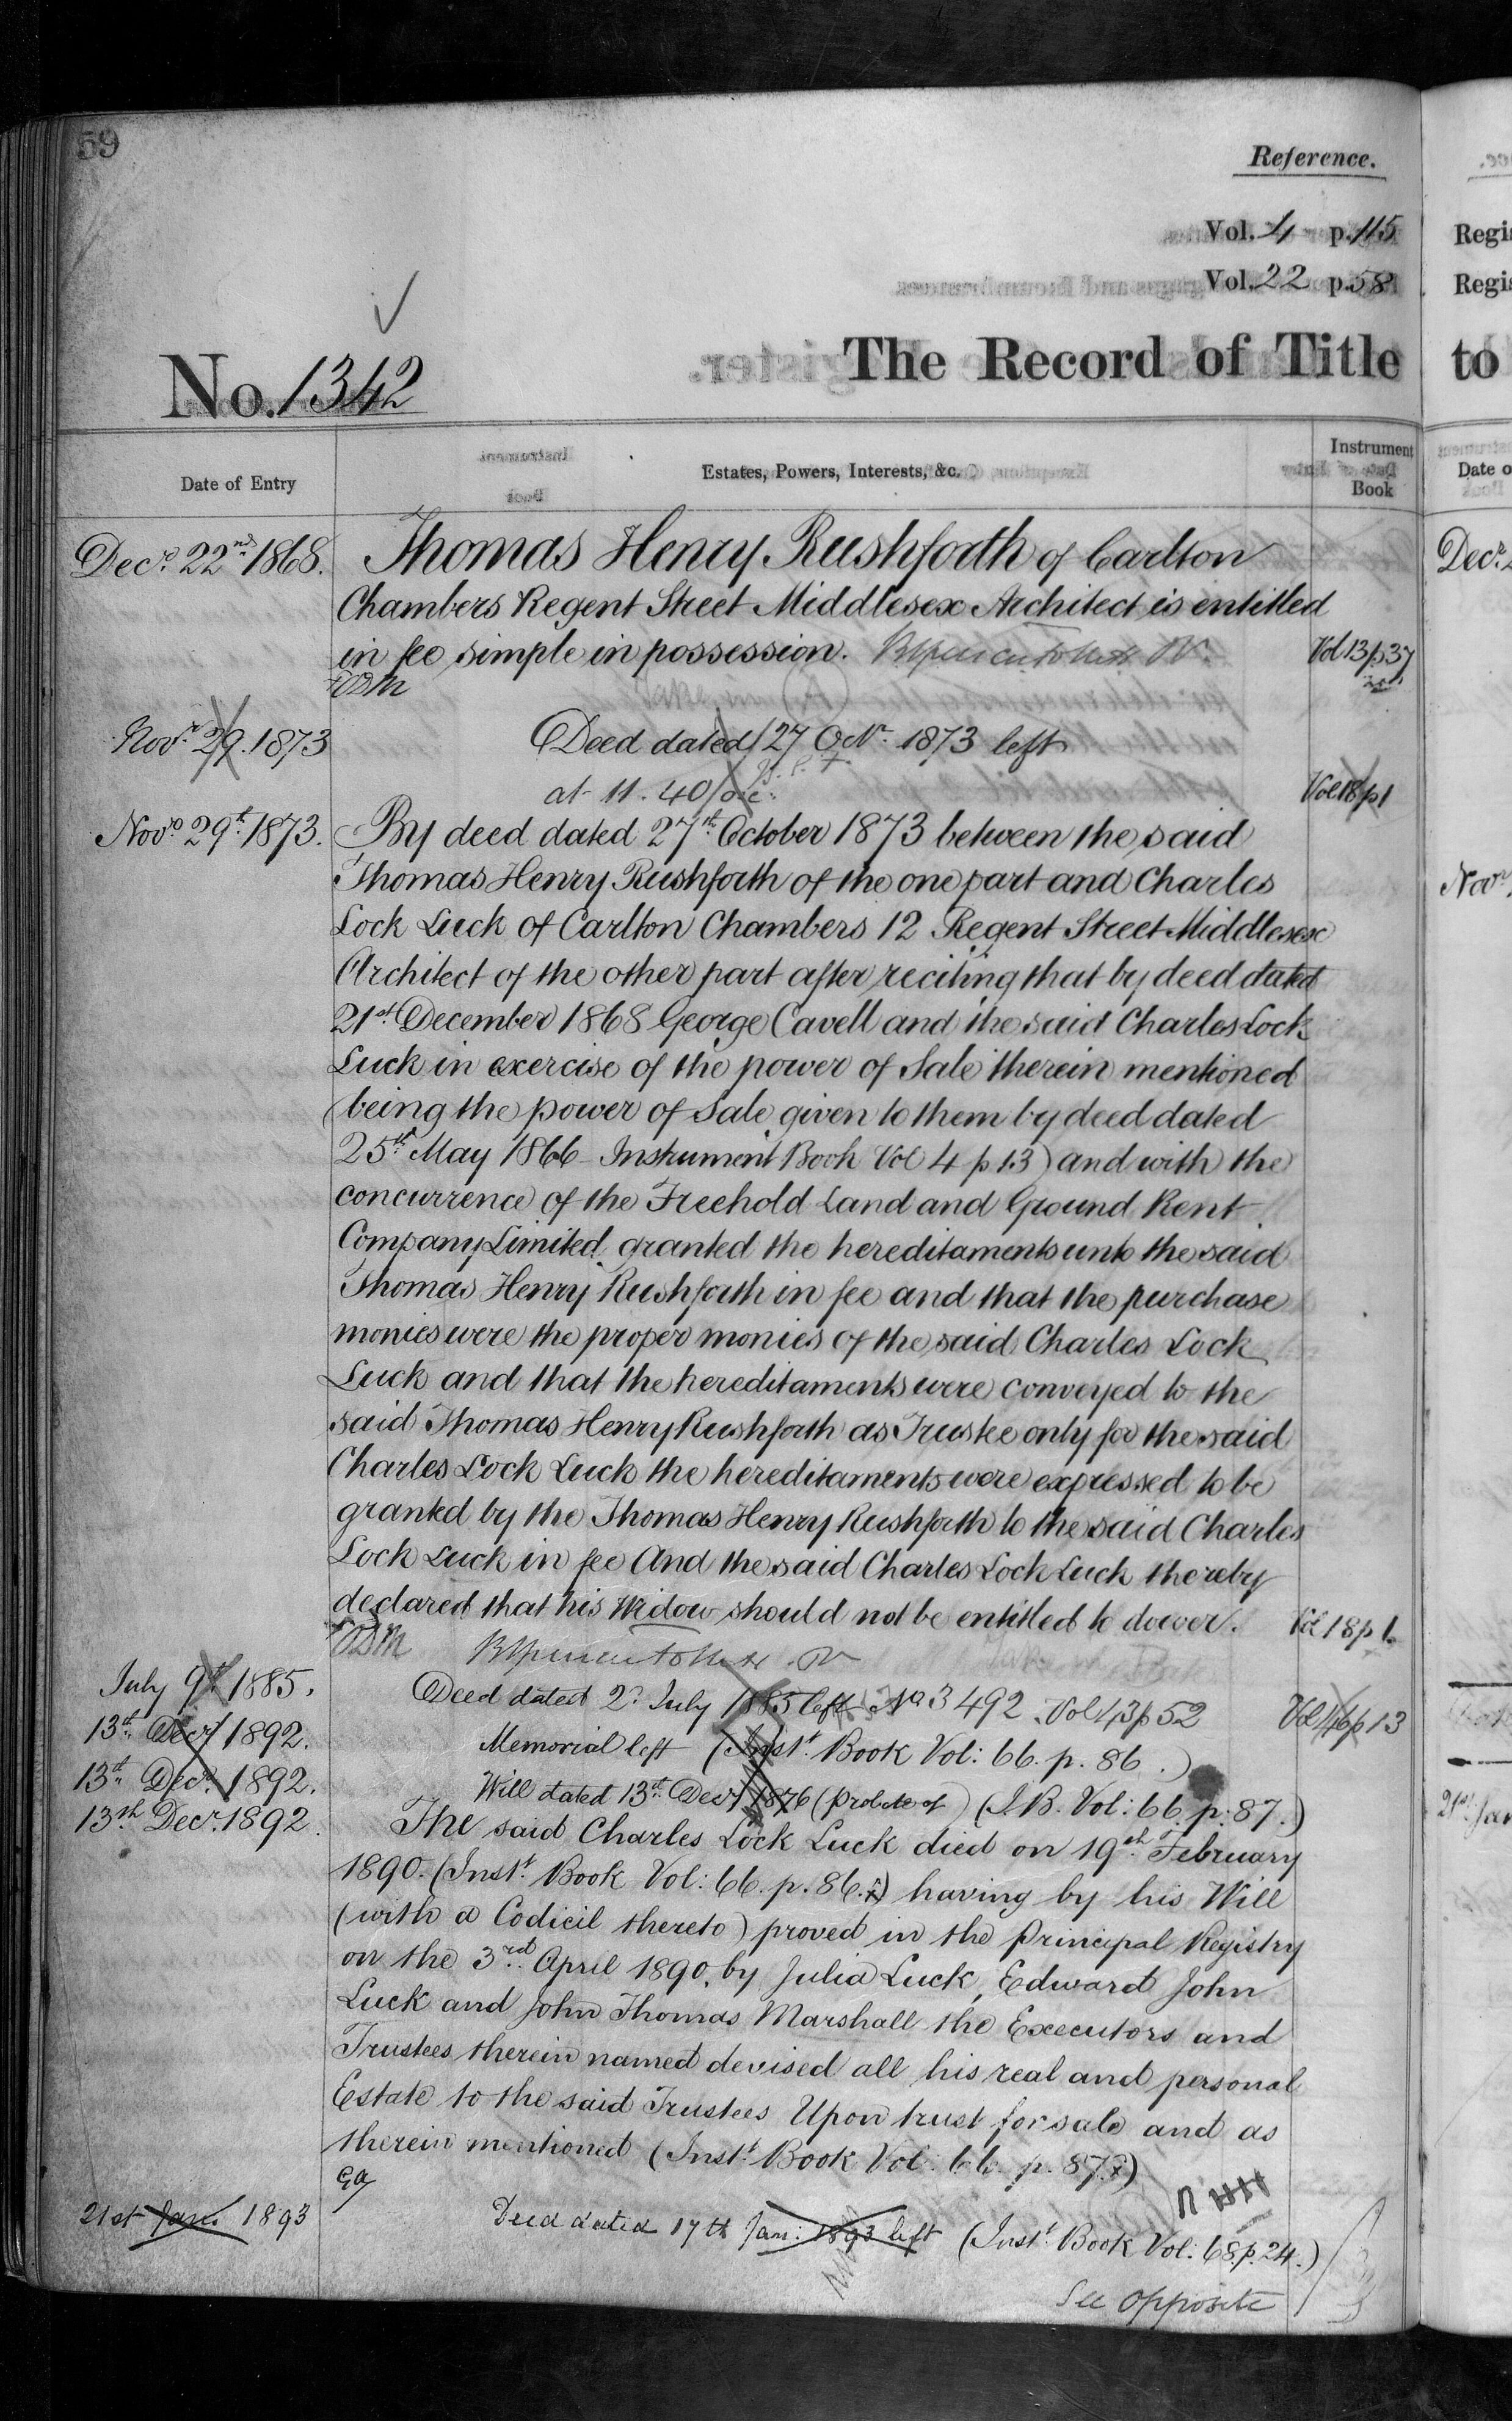 59
Reference.
Vol. 4 p. 115
Vol. 22 p. 58
No. 1342
The Record of Title
Date of Entry
Estates, Powers, Interests, &c.
Instrument Book
Decr. 22nd 1868. Thomas Henry Rushforth of Carlton
Chambers Regent Street Middlesex Architect is entitled
in fee simple in possession. Vol 13 p 37
Novr. 29. 1873 Deed dated 27 Octr. 1873 left
at 11.40 Vol 18 p 1
Novr. 29th. 1873. By deed dated 27th. October 1873 between the said
Thomas Henry Rushforth of the one part and Charles
Lock Luck of Carlton Chambers 12 Regent Street Middlesex
Architect of the other part after reciting that by deed dated
21st December 1868 George Cavell and the said Charles Lock
Luck in exercise of the power of Sale therein mentioned
(being the power of Sale given to them by deed dated
25th May 1866 Instrument Book Vol 4 p 13) and with the
concurrence of the Freehold Land and Ground Rent
Company Limited, granted the hereditaments unto the said
Thomas Henry Rushforth in fee and that the purchase
monies were the proper monies of the said Charles Lock
Luck and that the hereditaments were conveyed to the
said Thomas Henry Rushforth as Trustee only for the said
Charles Lock Luck the hereditaments were expressed to be
granted by the Thomas Henry Rushforth to the said Charles
Lock Luck in fee And the said Charles Lock Luck thereby
declared that his Widow should not be entitled to dower. Vol 18 p 1.
July 9th 1885. Deed dated 2d July 1885 left No 3492 Vol 43 p 52 Vol 46 p 13
13th. Decr 1892. Memorial left (Inst. Book Vol: 66. p. 86.)
13th Decr. 1892. Will dated 13th Decr 1876 (probate of) (I.B. Vol: 66. p. 87.)
13th Decr. 1892. The said Charles Lock Luck died on 19th February
1890. (Inst. Book Vol: 66. p. 86.) having by his Will
(with a Codicil thereto) proved in the Principal Registry
on the 3rd. April 1890, by Julia Luck, Edward John
Luck and John Thomas Marshall the Executors and
Trustees therein named devised all his real and personal
Estate to the said Trustees Upon trust for sale and as
therein mentioned (Inst. Book Vol: 66. p. 87.)
21st Jan. 1893 Deed dated 17th Jan: 1893 left (Inst. Book Vol: 68. p. 24.)
See opposite
to
Regis
Regis
Date o
Decr.
Novr.
21st Jan